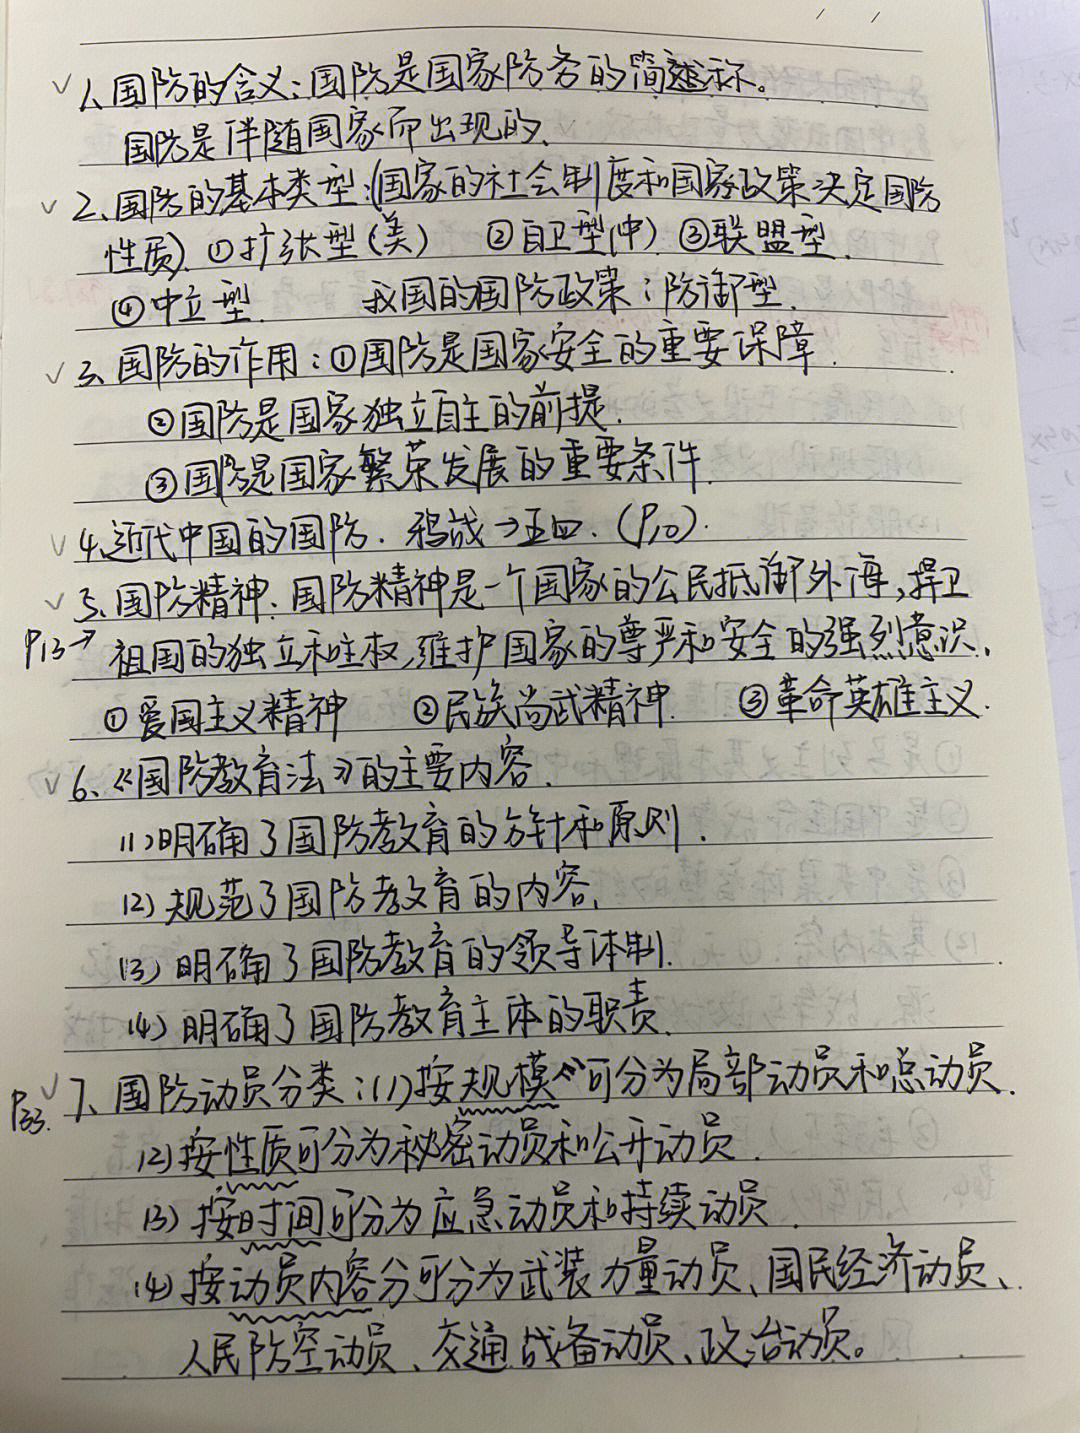 ✓ 1、国防的含义：国防是国家防务的简称。
国防是伴随国家而出现的、
✓ 2、国防的基本类型：(国家的社会制度和国家政策决定国防
性质). ①扩张型(美) ②自卫型(中). ③联盟型.
④中立型. 我国的国防政策：防御型.
✓ 3、国防的作用：①国防是国家安全的重要保障.
②国防是国家独立自主的前提.
③国防是国家繁荣发展的重要条件.
✓ 4、近代中国的国防. 鸦战→五四. (P10).
✓ 5、国防精神. 国防精神是一个国家的公民抵御外侮,捍卫
P13→ 祖国的独立和主权,维护国家的尊严和安全的强烈意识.
①爱国主义精神 ②民族尚武精神. ③革命英雄主义.
✓ 6、《国防教育法》的主要内容.
(1)明确了国防教育的方针和原则.
(2)规范了国防教育的内容.
(3)明确了国防教育的领导体制.
(4)明确了国防教育主体的职责.
P33. ✓ 7、国防动员分类：(1)按规模可分为局部动员和总动员.
(2)按性质可分为秘密动员和公开动员.
(3)按时间可分为应急动员和持续动员.
(4)按动员内容分可分为武装力量动员、国民经济动员、
人民防空动员、交通战备动员、政治动员。